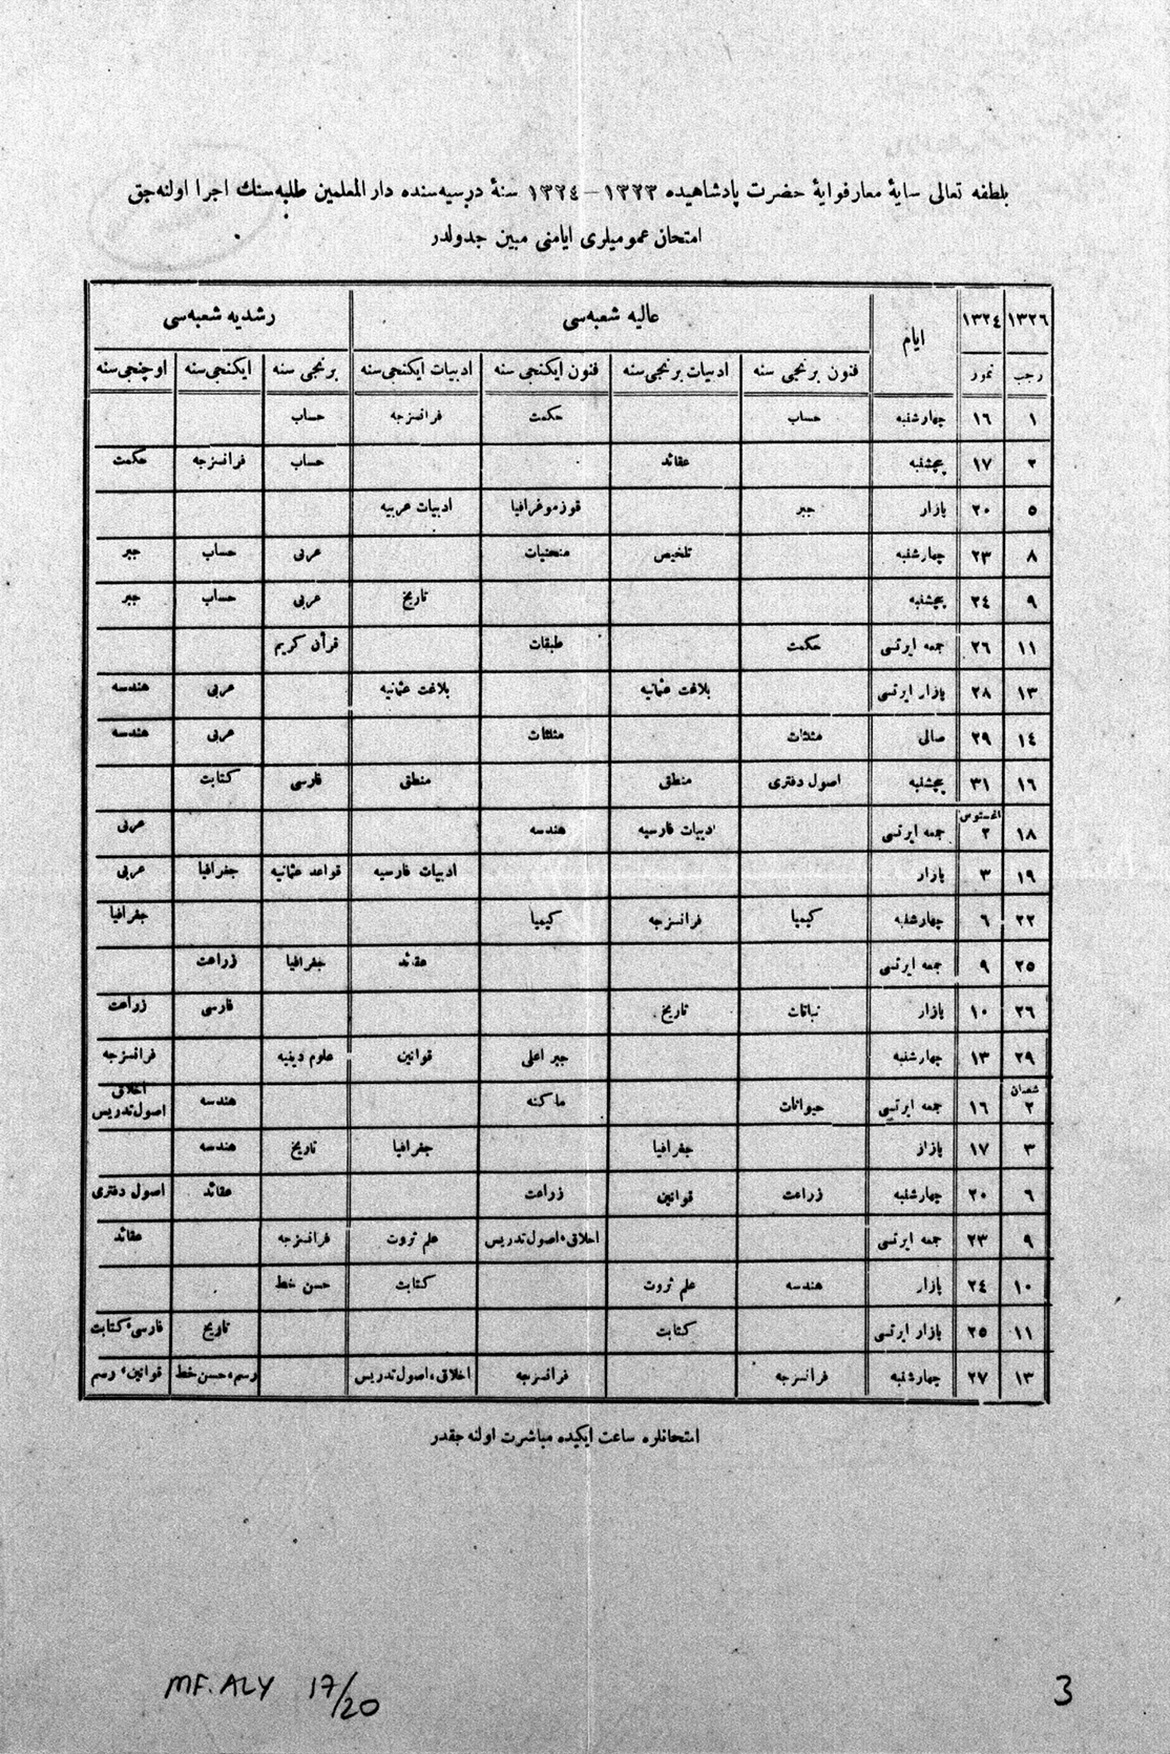 بلطفه تعالی سایۀ معارفوایۀ حضرت پادشاهیده ١٣٢٣ – ١٣٢٤ سنۀ درسیه‌سنده دارالمعلمین طلبه‌سنك اجرا اولنه‌جق
امتحان عمومیلری ایامنی مبین جدولدر
١٣٢٦ ١٣٢٤ ایام عالیه شعبه‌سی رشدیه شعبه‌سی
رجب تموز فنون برنجی سنه ادبیات برنجی سنه فنون ایكنجی سنه ادبیات ایكنجی سنه برنجی سنه ایكنجی سنه اوچنجی سنه
١ ١٦ چهارشنبه حساب حكمت فرانسزجه حساب
٢ ١٧ پنچشنبه عقائد حساب فرانسزجه حكمت
٥ ٢٠ بازار جبر قوزموغرافیا ادبیات عربیه
٨ ٢٣ چهارشنبه تلخیص منحنیات عربی حساب جبر
٩ ٢٤ پنچشنبه تاریخ عربی حساب جبر
١١ ٢٦ جمعه ایرتسی حكمت طبقات قرأن كریم
١٣ ٢٨ بازار ایرتسی بلاغت عثمانیه بلاغت عثمانیه عربی هندسه
١٤ ٢٩ صالی مثلثات مثلثات عربی هندسه
١٦ ٣١ پنچشنبه اصول دفتری منطق منطق فارسی كتابت
١٨ اغستوس ٢ جمعه ایرتسی ادبیات فارسیه هندسه عربی
١٩ ٣ بازار ادبیات فارسیه قواعد عثمانیه جغرافیا عربی
٢٢ ٦ چهارشنبه كیمیا فرانسزجه كیمیا جغرافیا
٢٥ ٩ جمعه ایرتسی عقائد جغرافیا زراعت
٢٦ ١٠ بازار نباتات تاریخ فارسی زراعت
٢٩ ١٣ چهارشنبه جبر اعلی قوانین علوم دینیه فرانسزجه
شعبان ٢ ١٦ جمعه ایرتسی حیوانات ماكنه هندسه اخلاق اصول تدریس
٣ ١٧ بازار جغرافیا جغرافیا تاریخ هندسه
٦ ٢٠ چهارشنبه زراعت قوانین زراعت عقائد اصول دفتری
٩ ٢٣ جمعه ایرتسی اخلاق، اصول تدریس علم ثروت فرانسزجه عقائد
١٠ ٢٤ بازار هندسه علم ثروت كتابت حسن خط
١١ ٢٥ بازار ایرتسی كتابت تاریخ فارسی، كتابت
١٣ ٢٧ چهارشنبه فرانسزجه فرانسزجه اخلاق، اصول تدریس رسم، حسن خط قوانین، رسم
امتحانلره ساعت ایكیده مباشرت اولنه‌جقدر
MF. ALY 17/20
3